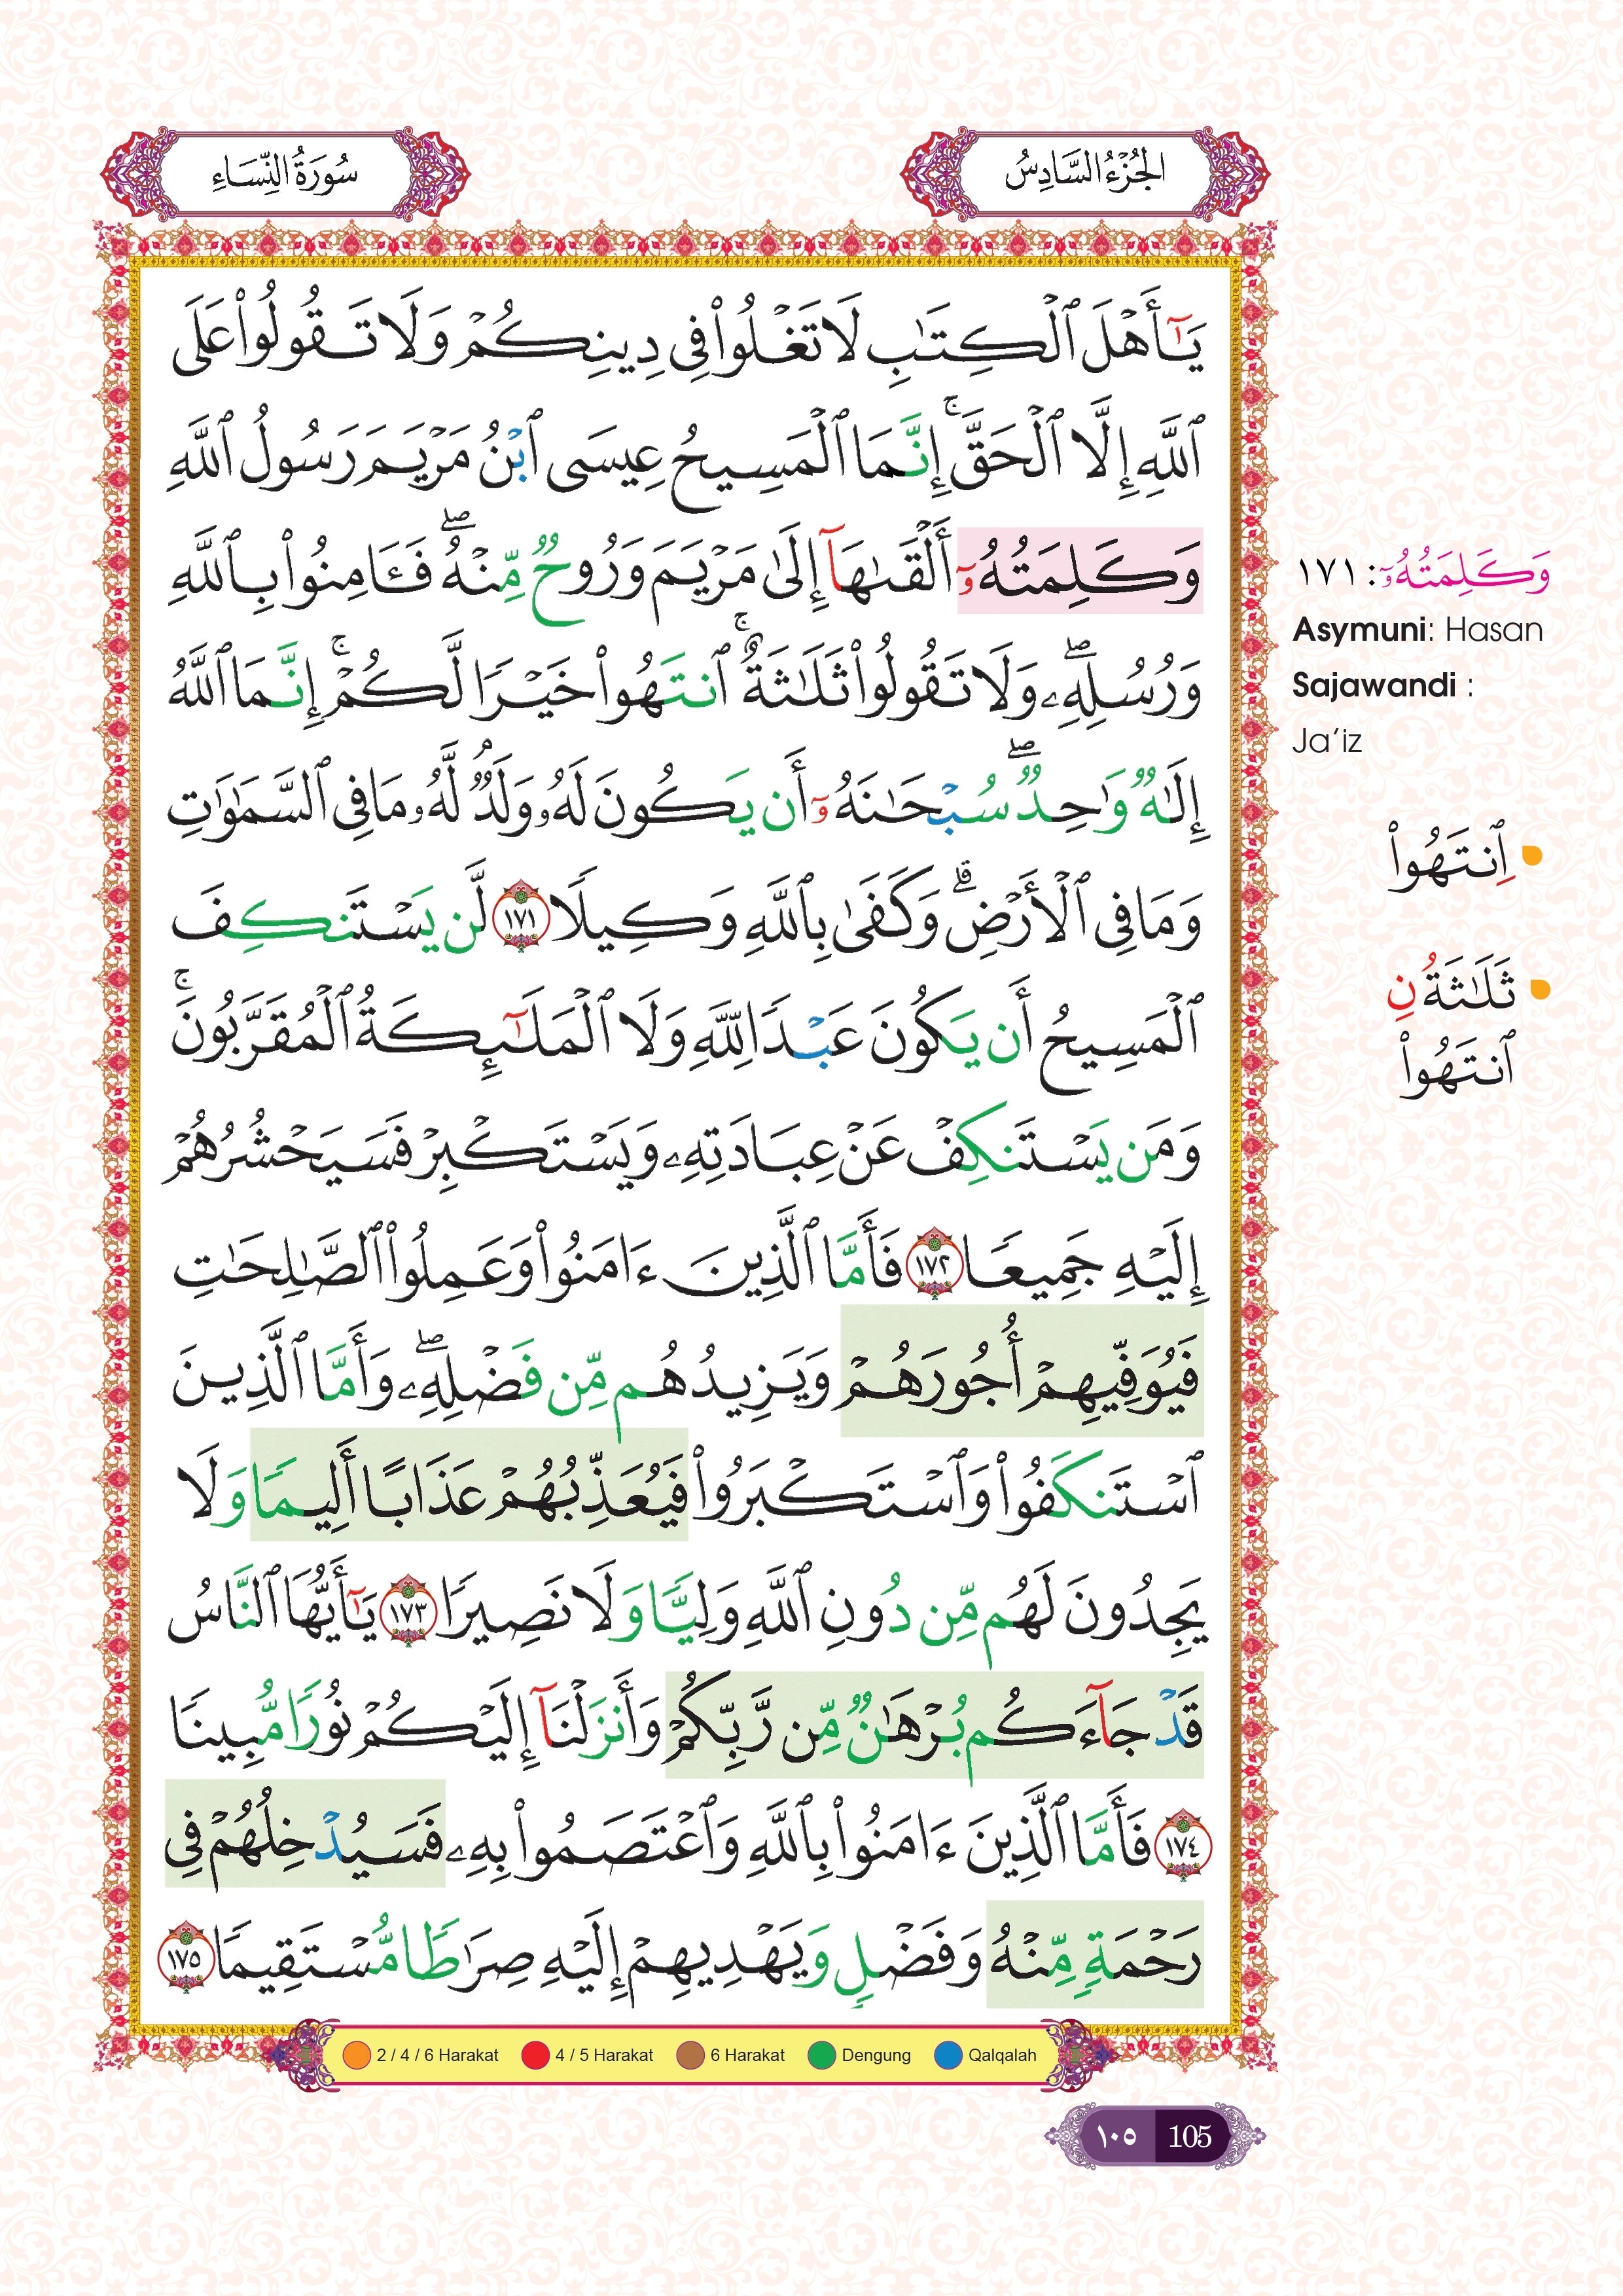 الجُزْءُ السَّادِسُ
سُورَةُ النِّسَاءِ
يَـٰٓأَهْلَ ٱلْكِتَـٰبِ لَا تَغْلُوا۟ فِى دِينِكُمْ وَلَا تَقُولُوا۟ عَلَى
ٱللَّهِ إِلَّا ٱلْحَقَّ ۚ إِنَّمَا ٱلْمَسِيحُ عِيسَى ٱبْنُ مَرْيَمَ رَسُولُ ٱللَّهِ
وَكَلِمَتُهُۥٓ أَلْقَىٰهَآ إِلَىٰ مَرْيَمَ وَرُوحٌ مِّنْهُ ۖ فَـَٔامِنُوا۟ بِٱللَّهِ
وَرُسُلِهِۦ ۖ وَلَا تَقُولُوا۟ ثَلَـٰثَةٌ ۚ ٱنتَهُوا۟ خَيْرًا لَّكُمْ ۚ إِنَّمَا ٱللَّهُ
إِلَـٰهٌ وَٰحِدٌ ۖ سُبْحَـٰنَهُۥٓ أَن يَكُونَ لَهُۥ وَلَدٌ ۘ لَّهُۥ مَا فِى ٱلسَّمَـٰوَٰتِ
وَمَا فِى ٱلْأَرْضِ ۗ وَكَفَىٰ بِٱللَّهِ وَكِيلًا ١٧١ لَّن يَسْتَنكِفَ
ٱلْمَسِيحُ أَن يَكُونَ عَبْدًا لِّلَّهِ وَلَا ٱلْمَلَـٰٓئِكَةُ ٱلْمُقَرَّبُونَ ۚ
وَمَن يَسْتَنكِفْ عَنْ عِبَادَتِهِۦ وَيَسْتَكْبِرْ فَسَيَحْشُرُهُمْ
إِلَيْهِ جَمِيعًا ١٧٢ فَأَمَّا ٱلَّذِينَ ءَامَنُوا۟ وَعَمِلُوا۟ ٱلصَّـٰلِحَـٰتِ
فَيُوَفِّيهِمْ أُجُورَهُمْ وَيَزِيدُهُم مِّن فَضْلِهِۦ ۖ وَأَمَّا ٱلَّذِينَ
ٱسْتَنكَفُوا۟ وَٱسْتَكْبَرُوا۟ فَيُعَذِّبُهُمْ عَذَابًا أَلِيمًا وَلَا
يَجِدُونَ لَهُم مِّن دُونِ ٱللَّهِ وَلِيًّا وَلَا نَصِيرًا ١٧٣ يَـٰٓأَيُّهَا ٱلنَّاسُ
قَدْ جَآءَكُم بُرْهَـٰنٌ مِّن رَّبِّكُمْ وَأَنزَلْنَآ إِلَيْكُمْ نُورًا مُّبِينًا
١٧٤ فَأَمَّا ٱلَّذِينَ ءَامَنُوا۟ بِٱللَّهِ وَٱعْتَصَمُوا۟ بِهِۦ فَسَيُدْخِلُهُمْ فِى
رَحْمَةٍ مِّنْهُ وَفَضْلٍ وَيَهْدِيهِمْ إِلَيْهِ صِرَٰطًا مُّسْتَقِيمًا ١٧٥
وَكَلِمَتُهُۥٓ : ١٧١
Asymuni: Hasan
Sajawandi :
Ja'iz
ٱِنتَهُوا۟
ثَلَـٰثَةُ نِ
ٱنتَهُوا۟
2 / 4 / 6 Harakat 4 / 5 Harakat 6 Harakat Dengung Qalqalah
١٠٥ 105